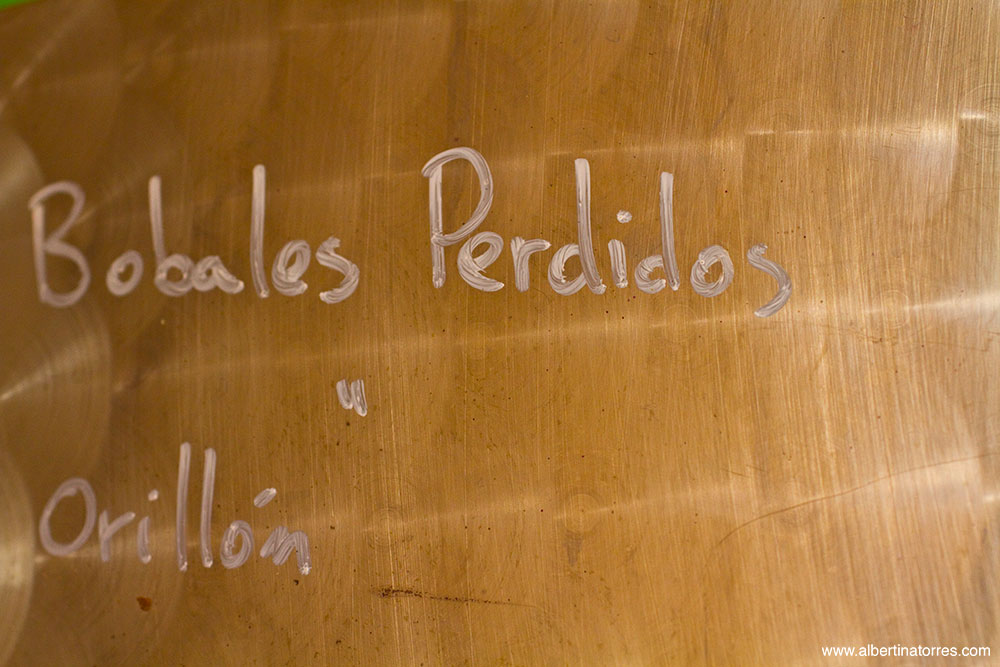 Bobales Perdidos
"
Orillón
www.albertinatorres.com